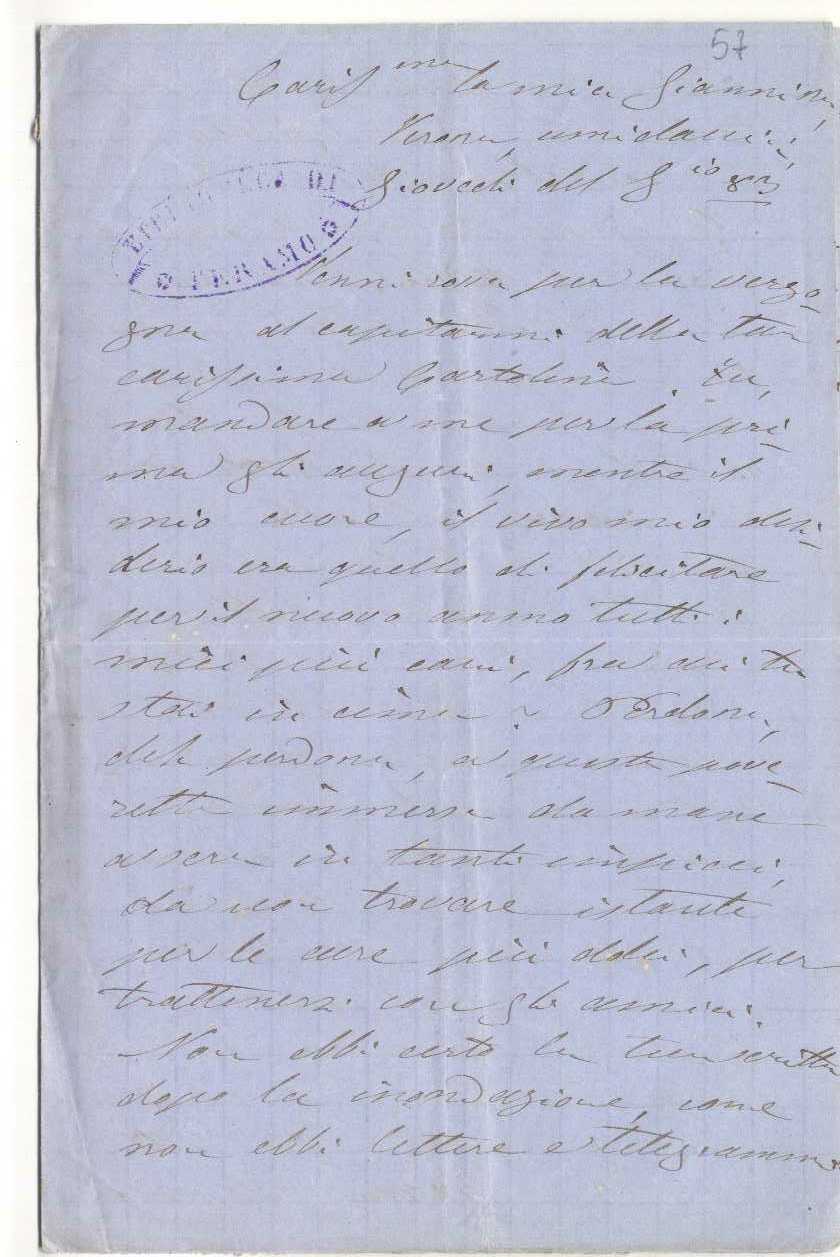 57
Cariss.ma la mia Giannina,
Verona,
Giovedì del G.io 83
BIBLIOTECA DI
TERAMO
Venni rossa per la vergo-
gna al capitarmi della tua
carissima Cartolina. Tu,
mandare a me per la pri-
ma gli auguri, mentre il
mio cuore, il vivo mio desi-
derio era quello di felicitare
per il nuovo anno tutti i
miei più cari, fra cui tu
stai in cima. Perdona,
deh perdona, a questa pove-
retta immersa da mane
a sera in tanti impicci,
da non trovare istante
per le cure più dolci, per
trattenersi con gli amici.
Non ebbi certo la tua scritta
dopo la inondazione, come
non ebbi lettere e telegrammi